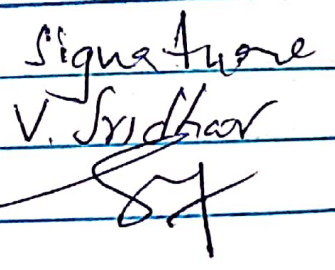 Signature
V. Sridhar